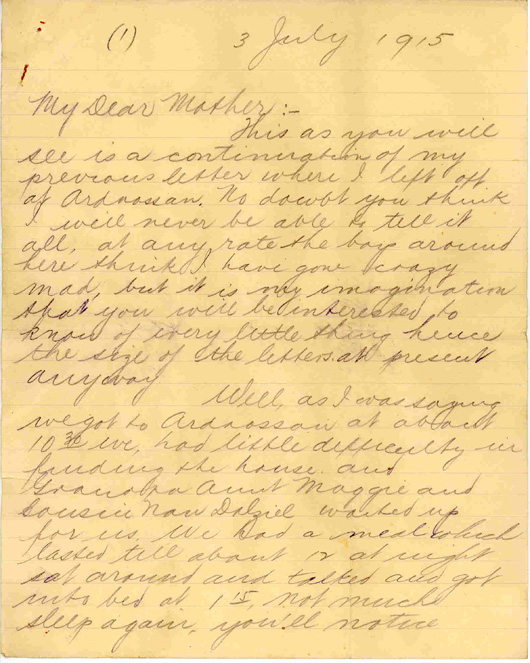 (1) 3 July 1915
My Dear Mother:-
This as you will
see is a continuation of my
previous letter where I left off
at Ardrossan. No doubt you think
I will never be able to tell it
all, at any rate the boys around
here think I have gone crazy
mad, but it is my imagination
that you will be interested to
know of every little thing hence
the size of the letters at present
anyway
Well, as I was saying
we got to Ardrossan at about
10 30 we, had little difficulty in
finding the house. and
Grandpa Aunt Maggie and
Cousin Nan Dalziel waited up
for us. We had a meal which
lasted till about 12 at night
sat around and talked and got
into bed at 1 15, not much
sleep again, you'll notice